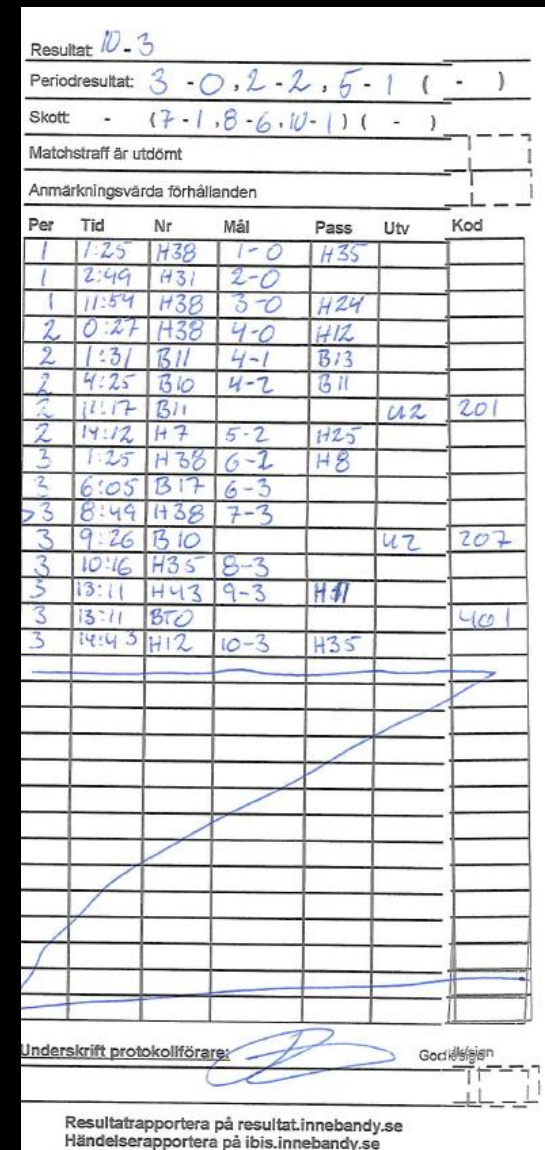 Resultat: 10-3
Periodresultat: 3 - 0, 2 - 2, 5 - 1 ( - )
Skott: - (7 - 1, 8 - 6, 10 - 1) ( - )
Matchstraff är utdömt
Anmärkningsvärda förhållanden
Per Tid Nr Mål Pass Utv Kod
1 1:25 H38 1-0 H35
1 2:49 H31 2-0
1 11:54 H38 3-0 H24
2 0:27 H38 4-0 H12
2 1:31 B11 4-1 B13
2 4:25 B10 4-2 B11
2 11:17 B11 U2 201
2 14:12 H7 5-2 H25
3 1:25 H38 6-2 H8
3 6:05 B17 6-3
>3 8:49 H38 7-3
3 9:26 B10 U2 207
3 10:16 H35 8-3
3 13:11 H43 9-3
3 13:11 BTO 401
3 14:43 H12 10-3 H35
Underskrift protokollförare:
Resultatrapportera på resultat.innebandy.se
Händelserapportera på ibis.innebandy.se